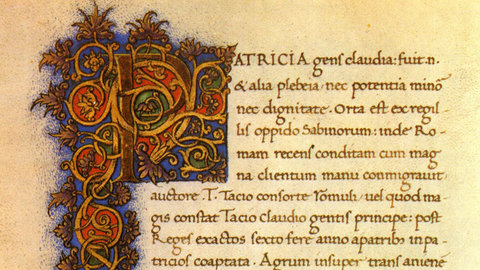 PATRICIA gens claudia: fuit .n.
& alia plebeia: nec potentia minoṝ
nec dignitate. Orta est ex regil-
lis oppido Sabinorum: inde Ro-
mam recens conditam cum mag
na clientum manu conmigrauit
auctore .T. Tacio consorte Romuli: uel quod ma-
gis constat Tacio Claudio gentis principe: post
Reges exactos sexto fere anno apatribus in pa-
tricios coaptata. Agrum insuper trans aniene